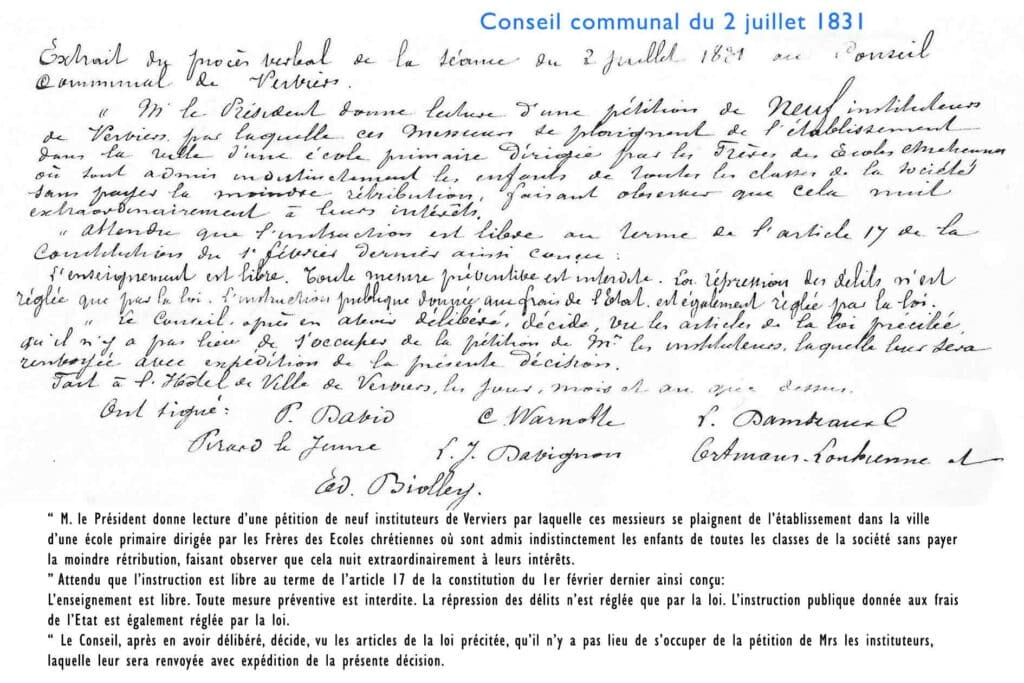 Conseil communal du 2 juillet 1831
Extrait du procès verbal de la séance du 2 juillet 1831 au Conseil
Communal de Verviers.
" Mr le Président donne lecture d'une pétition de Neuf instituteurs
de Verviers par laquelle ces Messieurs se plaignent de l'établissement
dans la ville d'une école primaire dirigée par les Frères des Ecoles chrétiennes
où sont admis indistinctement les enfants de toutes les classes de la société
sans payer la moindre rétribution, faisant observer que cela nuit
extraordinairement à leurs intérêts.
" Attendu que l'instruction est libre au terme de l'article 17 de la
Constitution du 1r février dernier ainsi conçue :
L'enseignement est libre. Toute mesure préventive est interdite. La répression des délits n'est
réglée que par la loi. L'instruction publique donnée aux frais de l'état est également réglée par la loi.
" Le Conseil, après en avoir délibéré, décide, vu les articles de la loi précitée,
qu'il n'y a pas lieu de s'occuper de la pétition de Mrs les instituteurs, laquelle leur sera
renvoyée avec expédition de la présente décision.
Fait à l'Hôtel de Ville de Verviers, les jour, mois et an que dessus.
Ont signé : P. David C. Warnotte
Pirard le Jeune L. J. Davignon et
Ed. Biolley.
“ M. le Président donne lecture d’une pétition de neuf instituteurs de Verviers par laquelle ces messieurs se plaignent de l’établissement dans la ville
d’une école primaire dirigée par les Frères des Ecoles chrétiennes où sont admis indistinctement les enfants de toutes les classes de la société sans payer
la moindre rétribution, faisant observer que cela nuit extraordinairement à leurs intérêts.
” Attendu que l’instruction est libre au terme de l’article 17 de la constitution du 1er février dernier ainsi conçu:
L’enseignement est libre. Toute mesure préventive est interdite. La répression des délits n’est réglée que par la loi. L’instruction publique donnée aux frais
de l’Etat est également réglée par la loi.
“ Le Conseil, après en avoir délibéré, décide, vu les articles de la loi précitée, qu’il n’y a pas lieu de s’occuper de la pétition de Mrs les instituteurs,
laquelle leur sera renvoyée avec expédition de la présente décision.